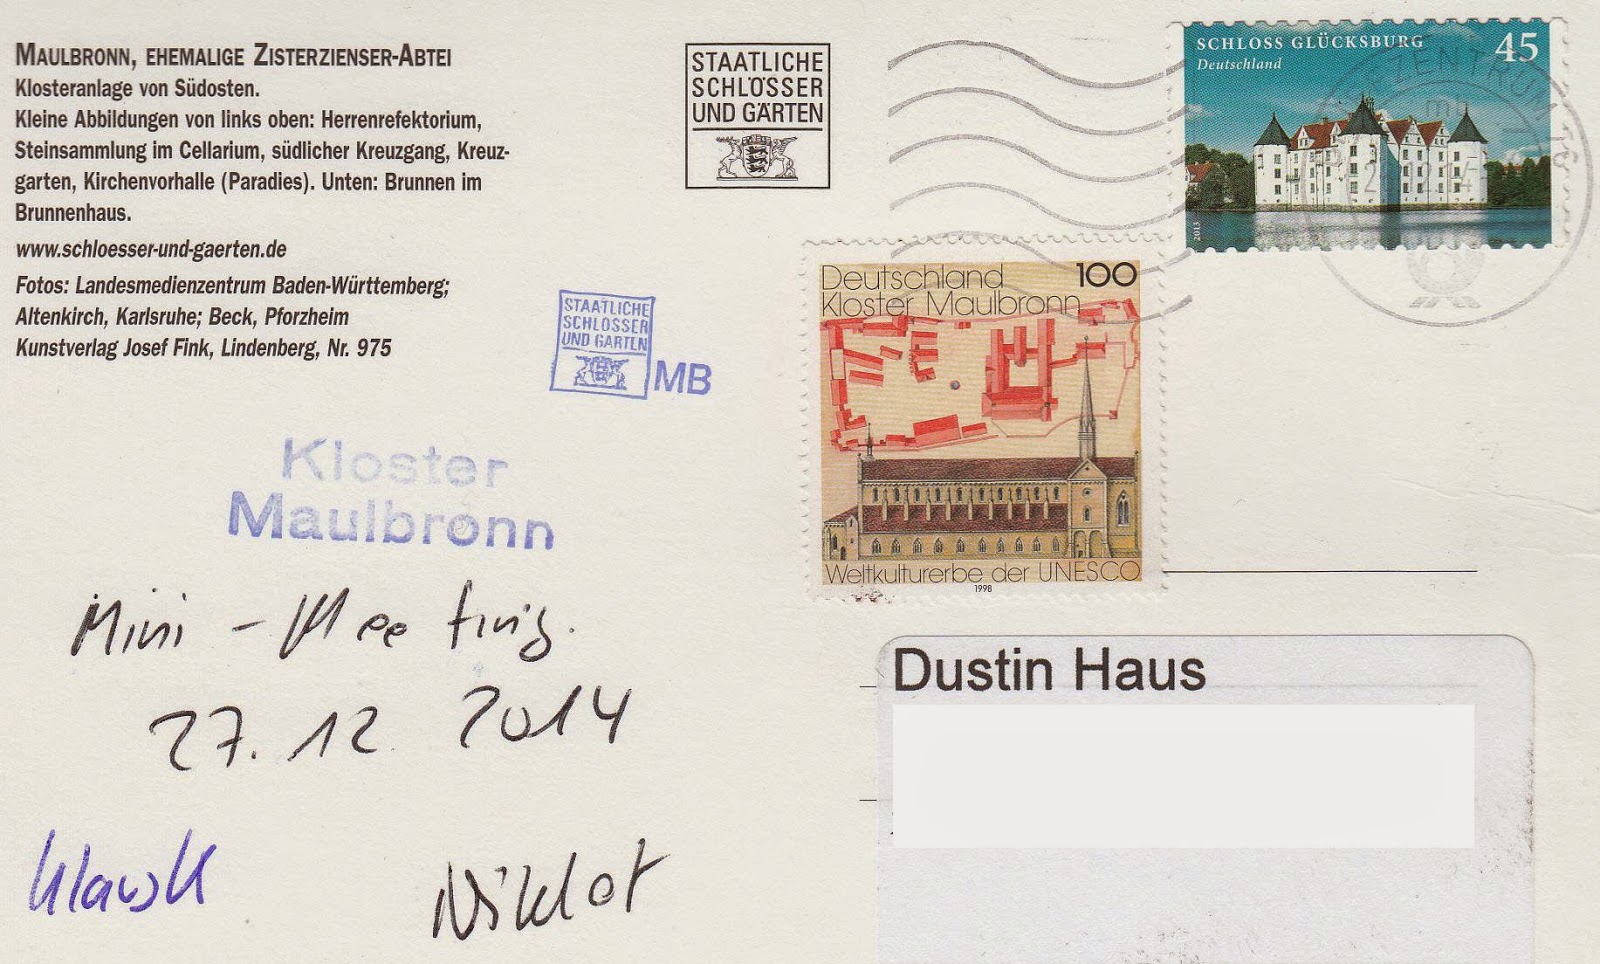 MAULBRONN, EHEMALIGE ZISTERZIENSER-ABTEI
Klosteranlage von Südosten.
Kleine Abbildungen von links oben: Herrenrefektorium,
Steinsammlung im Cellarium, südlicher Kreuzgang, Kreuz-
garten, Kirchenvorhalle (Paradies). Unten: Brunnen im
Brunnenhaus.
www.schloesser-und-gaerten.de
Fotos: Landesmedienzentrum Baden-Württemberg;
Altenkirch, Karlsruhe; Beck, Pforzheim
Kunstverlag Josef Fink, Lindenberg, Nr. 975
STAATLICHE
SCHLÖSSER
UND GÄRTEN
STAATLICHE
SCHLÖSSER
UND GÄRTEN
MB
Kloster
Maulbronn
Mini-Meeting.
27.12.2014
KlausK
Niklot
SCHLOSS GLÜCKSBURG 45
Deutschland
2013
ZENTRUM
Deutschland 100
Kloster Maulbronn
Weltkulturerbe der UNESCO
1998
Dustin Haus